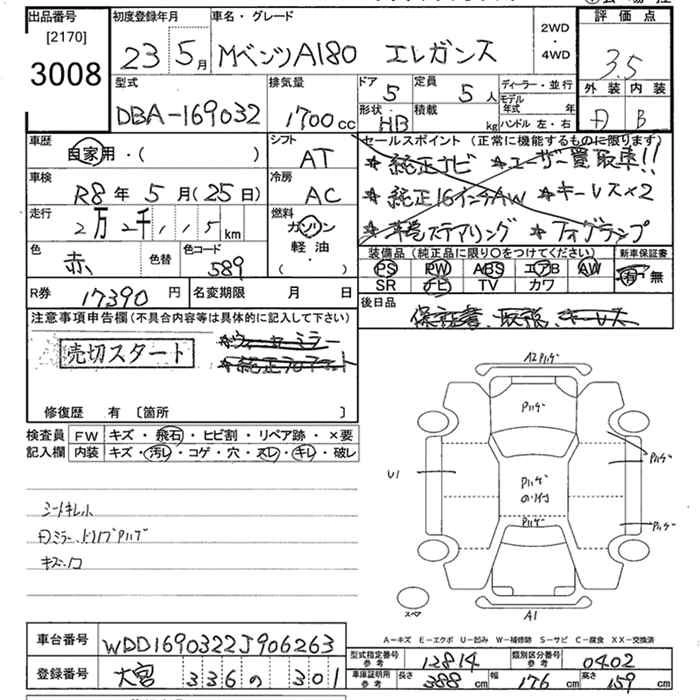 出品番号 初度登録年月 車名・グレード 2WD・4WD 評価点
[2170]
3008
23 5月 MベンツA180 エレガンス 3.5
型式 排気量 ドア 5 定員 5人 ディーラー・並行 外装 内装
モデル年式 年
DBA-169032 1700cc 形状 HB 積載 kg ハンドル 左・右 B
車歴 シフト セールスポイント (正常に機能するものに限ります)
自家用・( ) AT *純正ナビ *ユーザー買取車!!
車検 冷房
R8年 5月(25日) AC *純正16インチAW *キーレス×2
走行 燃料
2万2千,,5km ガソリン *本革ステアリング *フォグランプ
色 色替 色コード 軽油・ 装備品(純正品に限り○をつけてください) 新車保証書
赤 589 ( ) PS PW ABS エアB AW 有・無
SR ナビ TV カワ
R券 17390円 名変期限 月 日 後日品
注意事項申告欄(不具合内容等は具体的に記入して下さい) 保証書、取説、キーレス
売切スタート
修復歴 有 〔箇所 〕
検査員 FW キズ・飛石・ヒビ割・リペア跡・×要
記入欄 内装 キズ・汚レ・コゲ・穴・スレ・キレ・破レ
A2 Pハゲ
Pハゲ
Pハゲ
U1
Pハゲ
Pハゲ
Pハゲ
シートキレ
キズ
スペア
A1
A-キズ E-エクボ U-凹み W-補修跡 S-サビ C-腐食 XX-交換済
車台番号 WDD1690322J906263
型式指定番号 参考 12814 類別区分番号 参考 0402
登録番号 大宮 336 の 301
車庫証明用 参考 長さ 388cm 幅 176cm 高さ 159cm